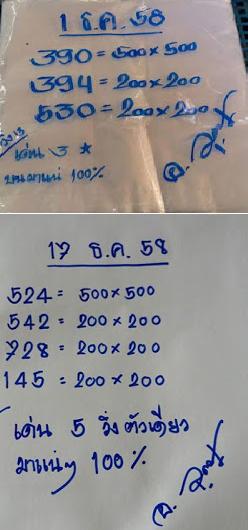 1 ธ.ค. 58
390 = 500 x 500
394 = 200 x 200
530 = 200 x 200
เด่น 3 ★
บนมาแน่ 100%
17 ธ.ค. 58
524 = 500 x 500
542 = 200 x 200
728 = 200 x 200
145 = 200 x 200
เด่น 5 วิ่งตัวเดียว
มาแน่ๆ 100 %